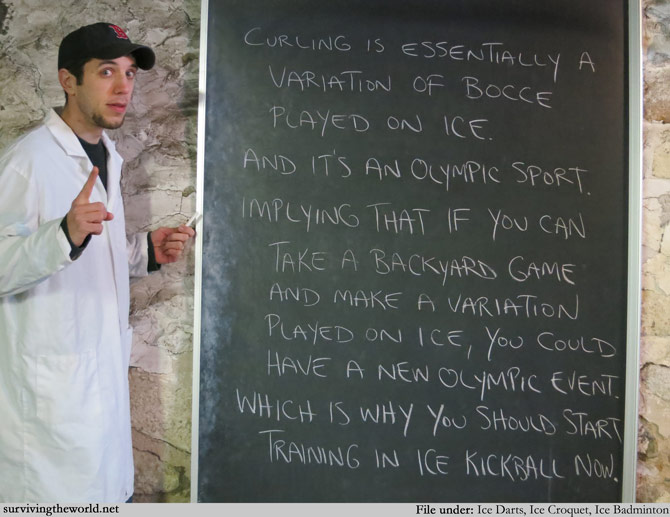 CURLING IS ESSENTIALLY A
VARIATION OF BOCCE
PLAYED ON ICE.
AND IT'S AN OLYMPIC SPORT.
IMPLYING THAT IF YOU CAN
TAKE A BACKYARD GAME
AND MAKE A VARIATION
PLAYED ON ICE, YOU COULD
HAVE A NEW OLYMPIC EVENT.
WHICH IS WHY YOU SHOULD START
TRAINING IN ICE KICKBALL NOW.
survivingtheworld.net
File under: Ice Darts, Ice Croquet, Ice Badminton